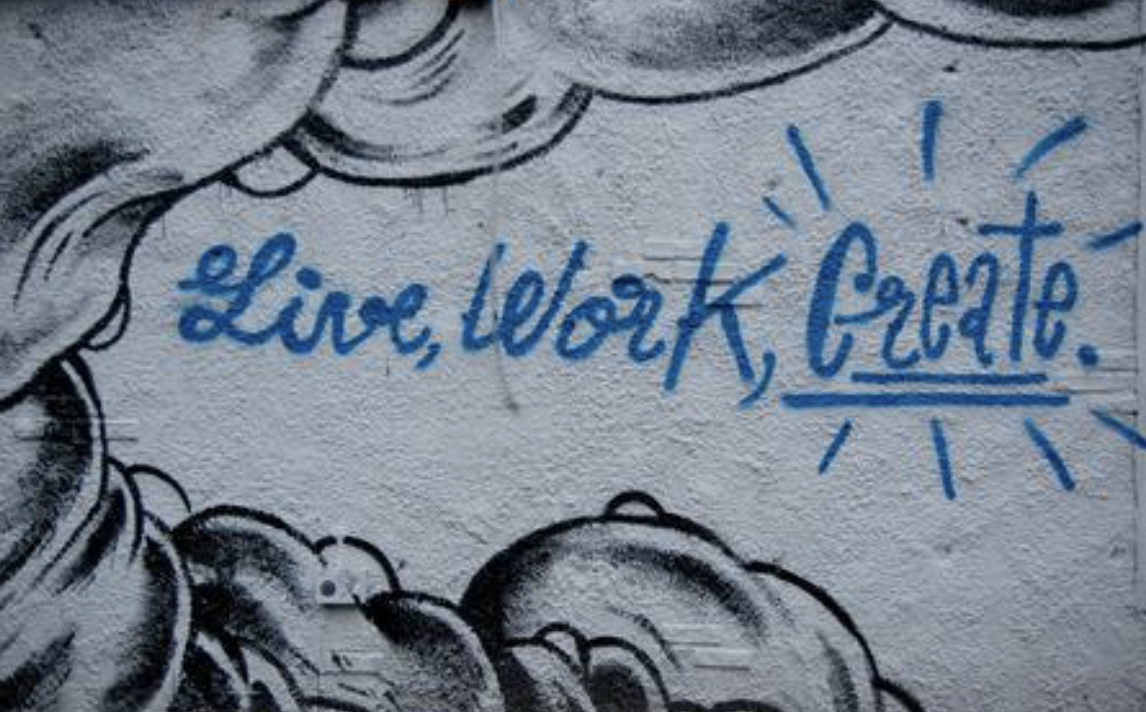 Live, Work, Create.